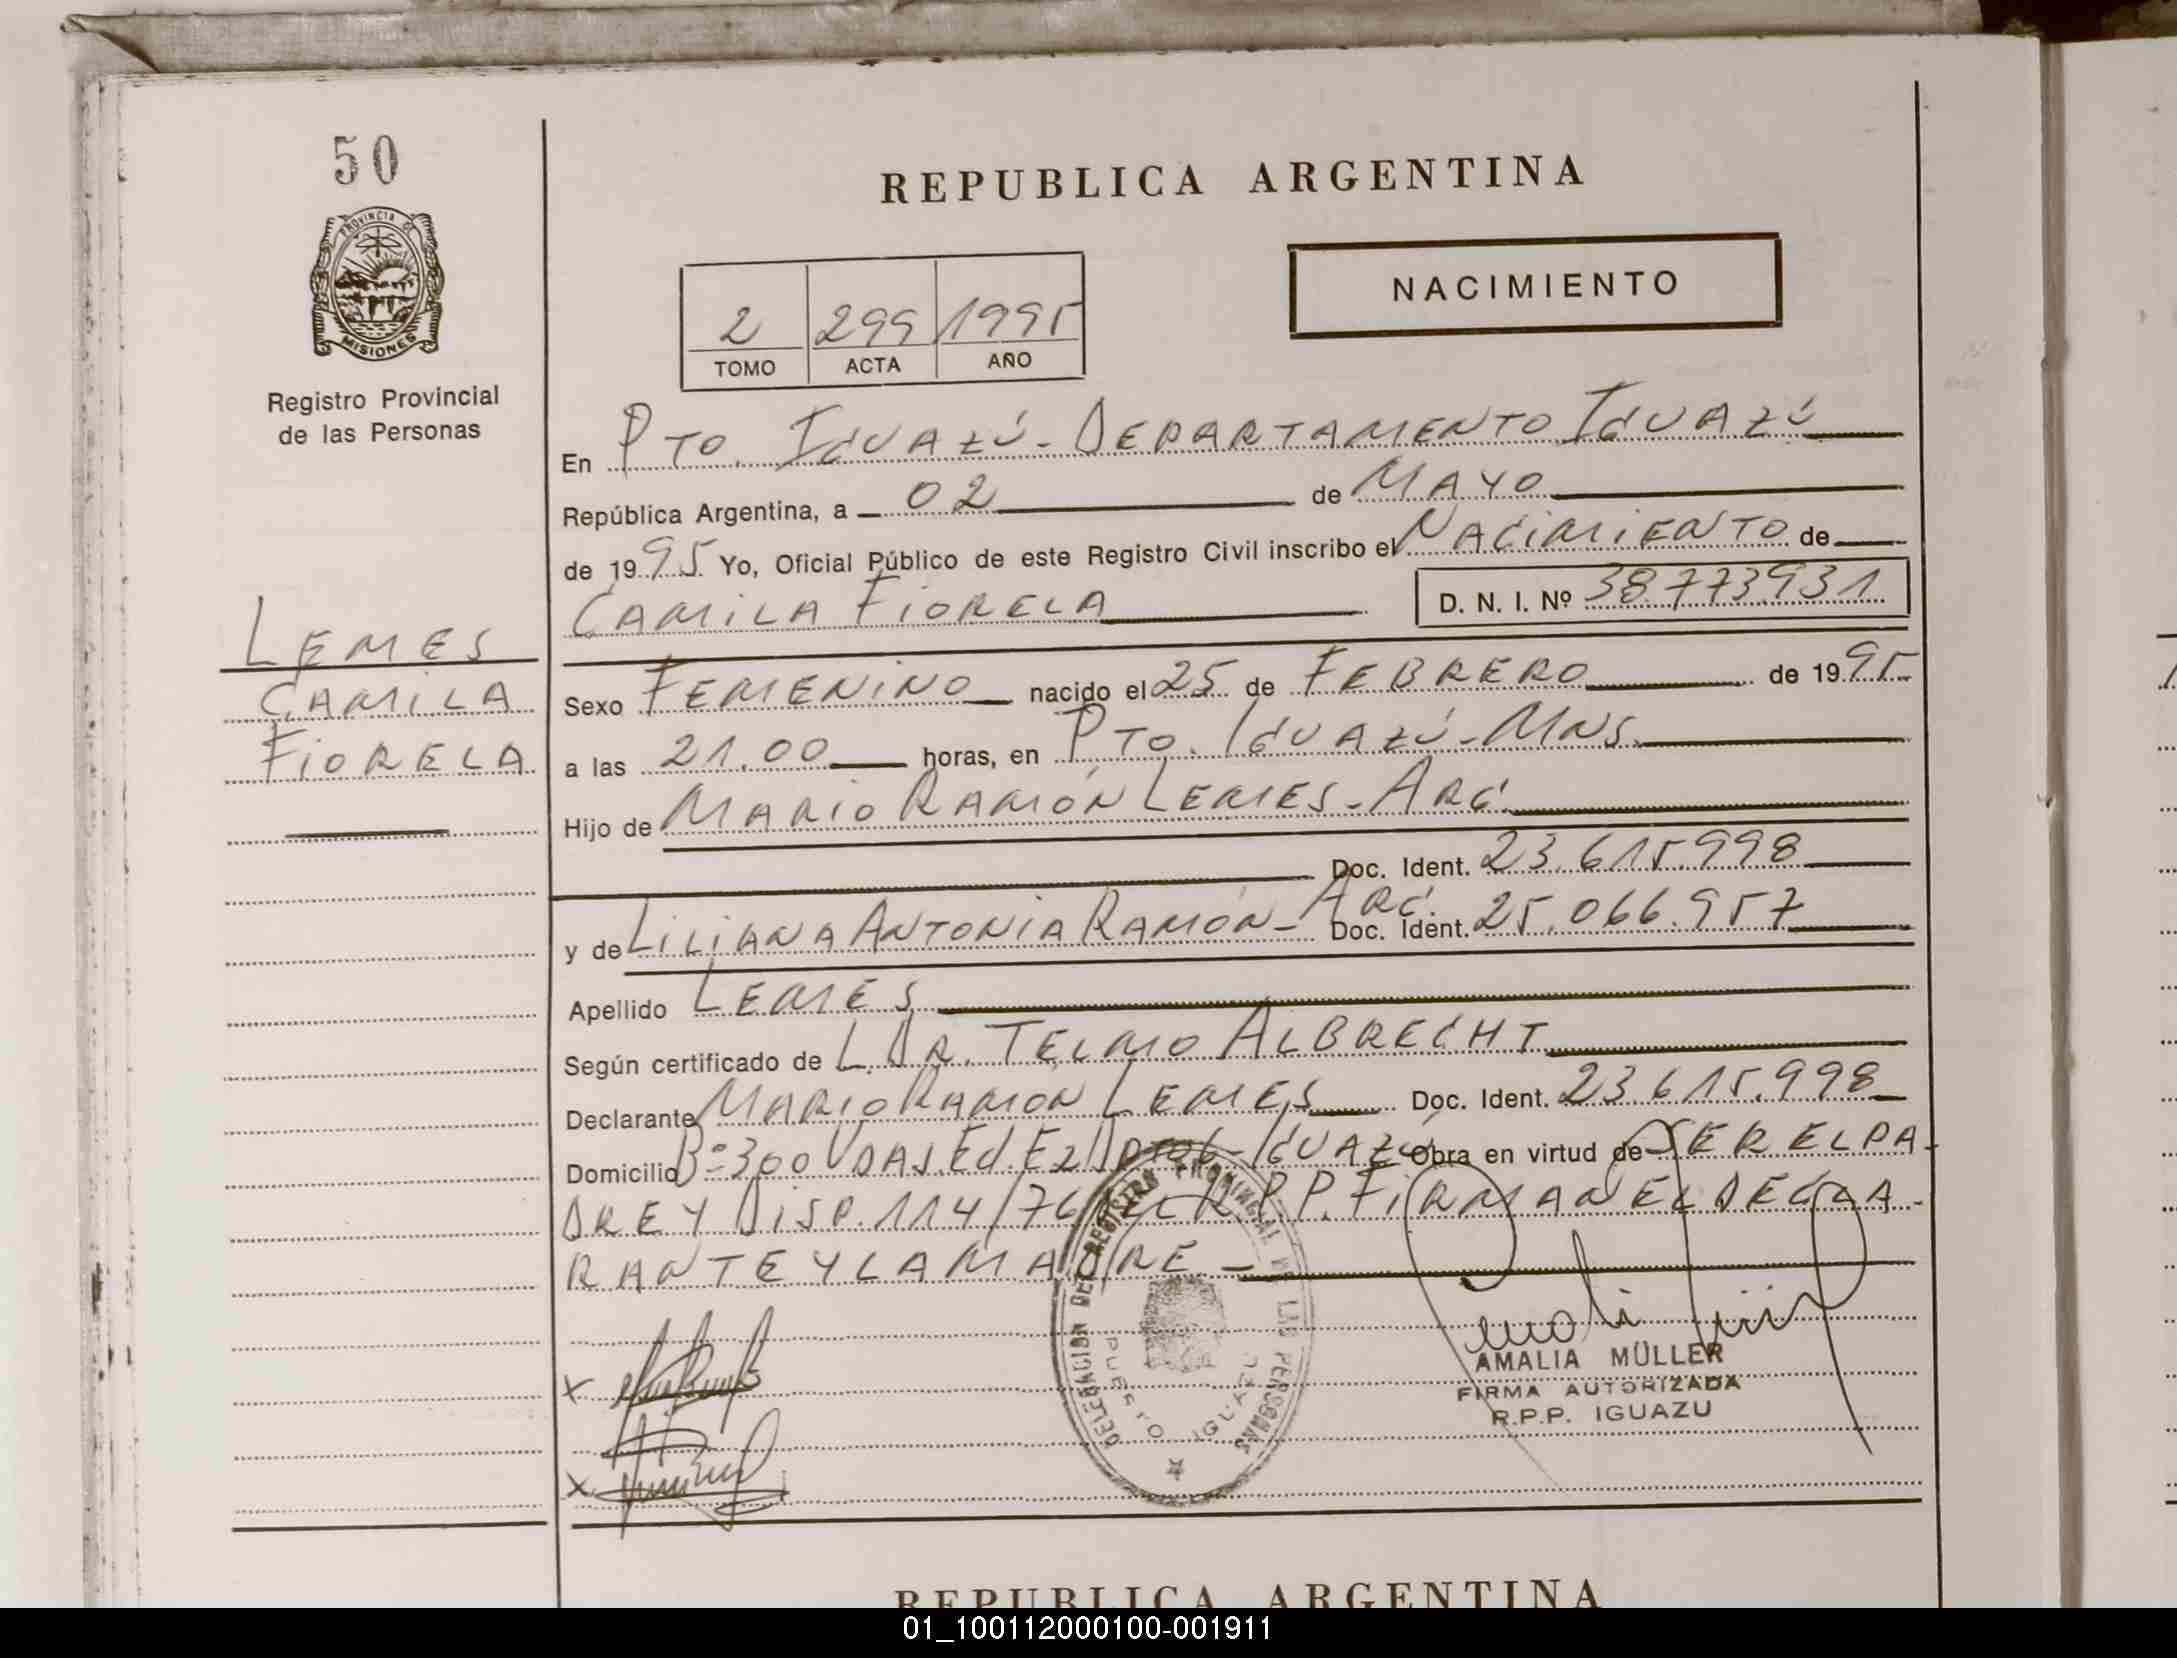 50
PROVINCIA DE
MISIONES
Registro Provincial
de las Personas
LEMES
CAMILA
FIORELA
REPUBLICA ARGENTINA
NACIMIENTO
2 299 1995
TOMO ACTA AÑO
En PTO. IGUAZÚ - DEPARTAMENTO IGUAZÚ
República Argentina, a 02 de MAYO
de 1995 Yo, Oficial Público de este Registro Civil inscribo el NACIMIENTO de
CAMILA FIORELA D. N. I. Nº 38.773.931
Sexo FEMENINO nacido el 25 de FEBRERO de 1995
a las 21.00 horas, en PTO. IGUAZÚ - MNS.
Hijo de MARIO RAMÓN LEMES - ARG.
Doc. Ident. 23.615.998
y de LILIANA ANTONIA RAMÓN - ARG. Doc. Ident. 25.066.957
Apellido LEMES
Según certificado de L. DR. TELMO ALBRECHT
Declarante MARIO RAMÓN LEMES Doc. Ident. 23.615.998
Domicilio Bº 300 VDAS. Ed. E2 IGUAZÚ Obra en virtud de SER EL PA-
DRE Y DISP. 114/76 R.P.P. FIRMAN EL DECLA-
RANTE Y LA MADRE -
DELEGACION DEL REGISTRO PROVINCIAL DE LAS PERSONAS
PUERTO IGUAZU
X
X
AMALIA MÜLLER
FIRMA AUTORIZADA
R.P.P. IGUAZU
REPUBLICA ARGENTINA
01_100112000100-001911